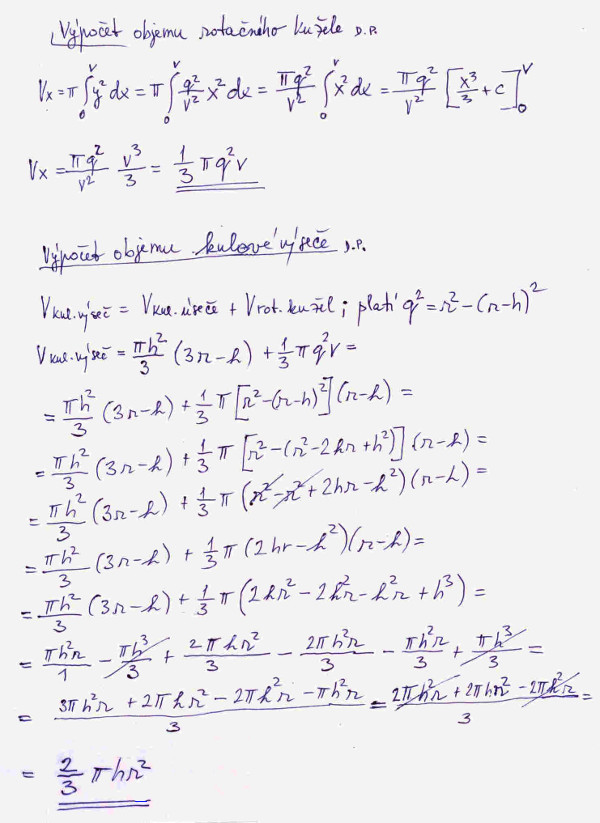 Výpočet objemu rotačného kužele D.P.
Vx = π ∫₀ᵛ y² dx = π ∫₀ᵛ q²/v² x² dx = πq²/v² ∫₀ᵛ x² dx = πq²/v² [x³/3 + c]₀ᵛ
Vx = πq²/v² v³/3 = 1/3 πq²v
Výpočet objemu kulové výseče D.P.
Vkul.výseč = Vkul.úseče + Vrot.kužel ; platí q² = r² - (r-h)²
Vkul.výseč = πh²/3 (3r-h) + 1/3 πq²v =
= πh²/3 (3r-h) + 1/3 π [r² - (r-h)²] (r-h) =
= πh²/3 (3r-h) + 1/3 π [r² - (r² - 2hr + h²)] (r-h) =
= πh²/3 (3r-h) + 1/3 π (r² - r² + 2hr - h²) (r-h) =
= πh²/3 (3r-h) + 1/3 π (2hr - h²)(r-h) =
= πh²/3 (3r-h) + 1/3 π (2hr² - 2h²r - h²r + h³) =
= πh²r/1 - πh³/3 + 2πhr²/3 - 2πh²r/3 - πh²r/3 + πh³/3 =
= (3πh²r + 2πhr² - 2πh²r - πh²r)/3 = (2πh²r + 2πhr² - 2πh²r)/3 =
= 2/3 πhr²